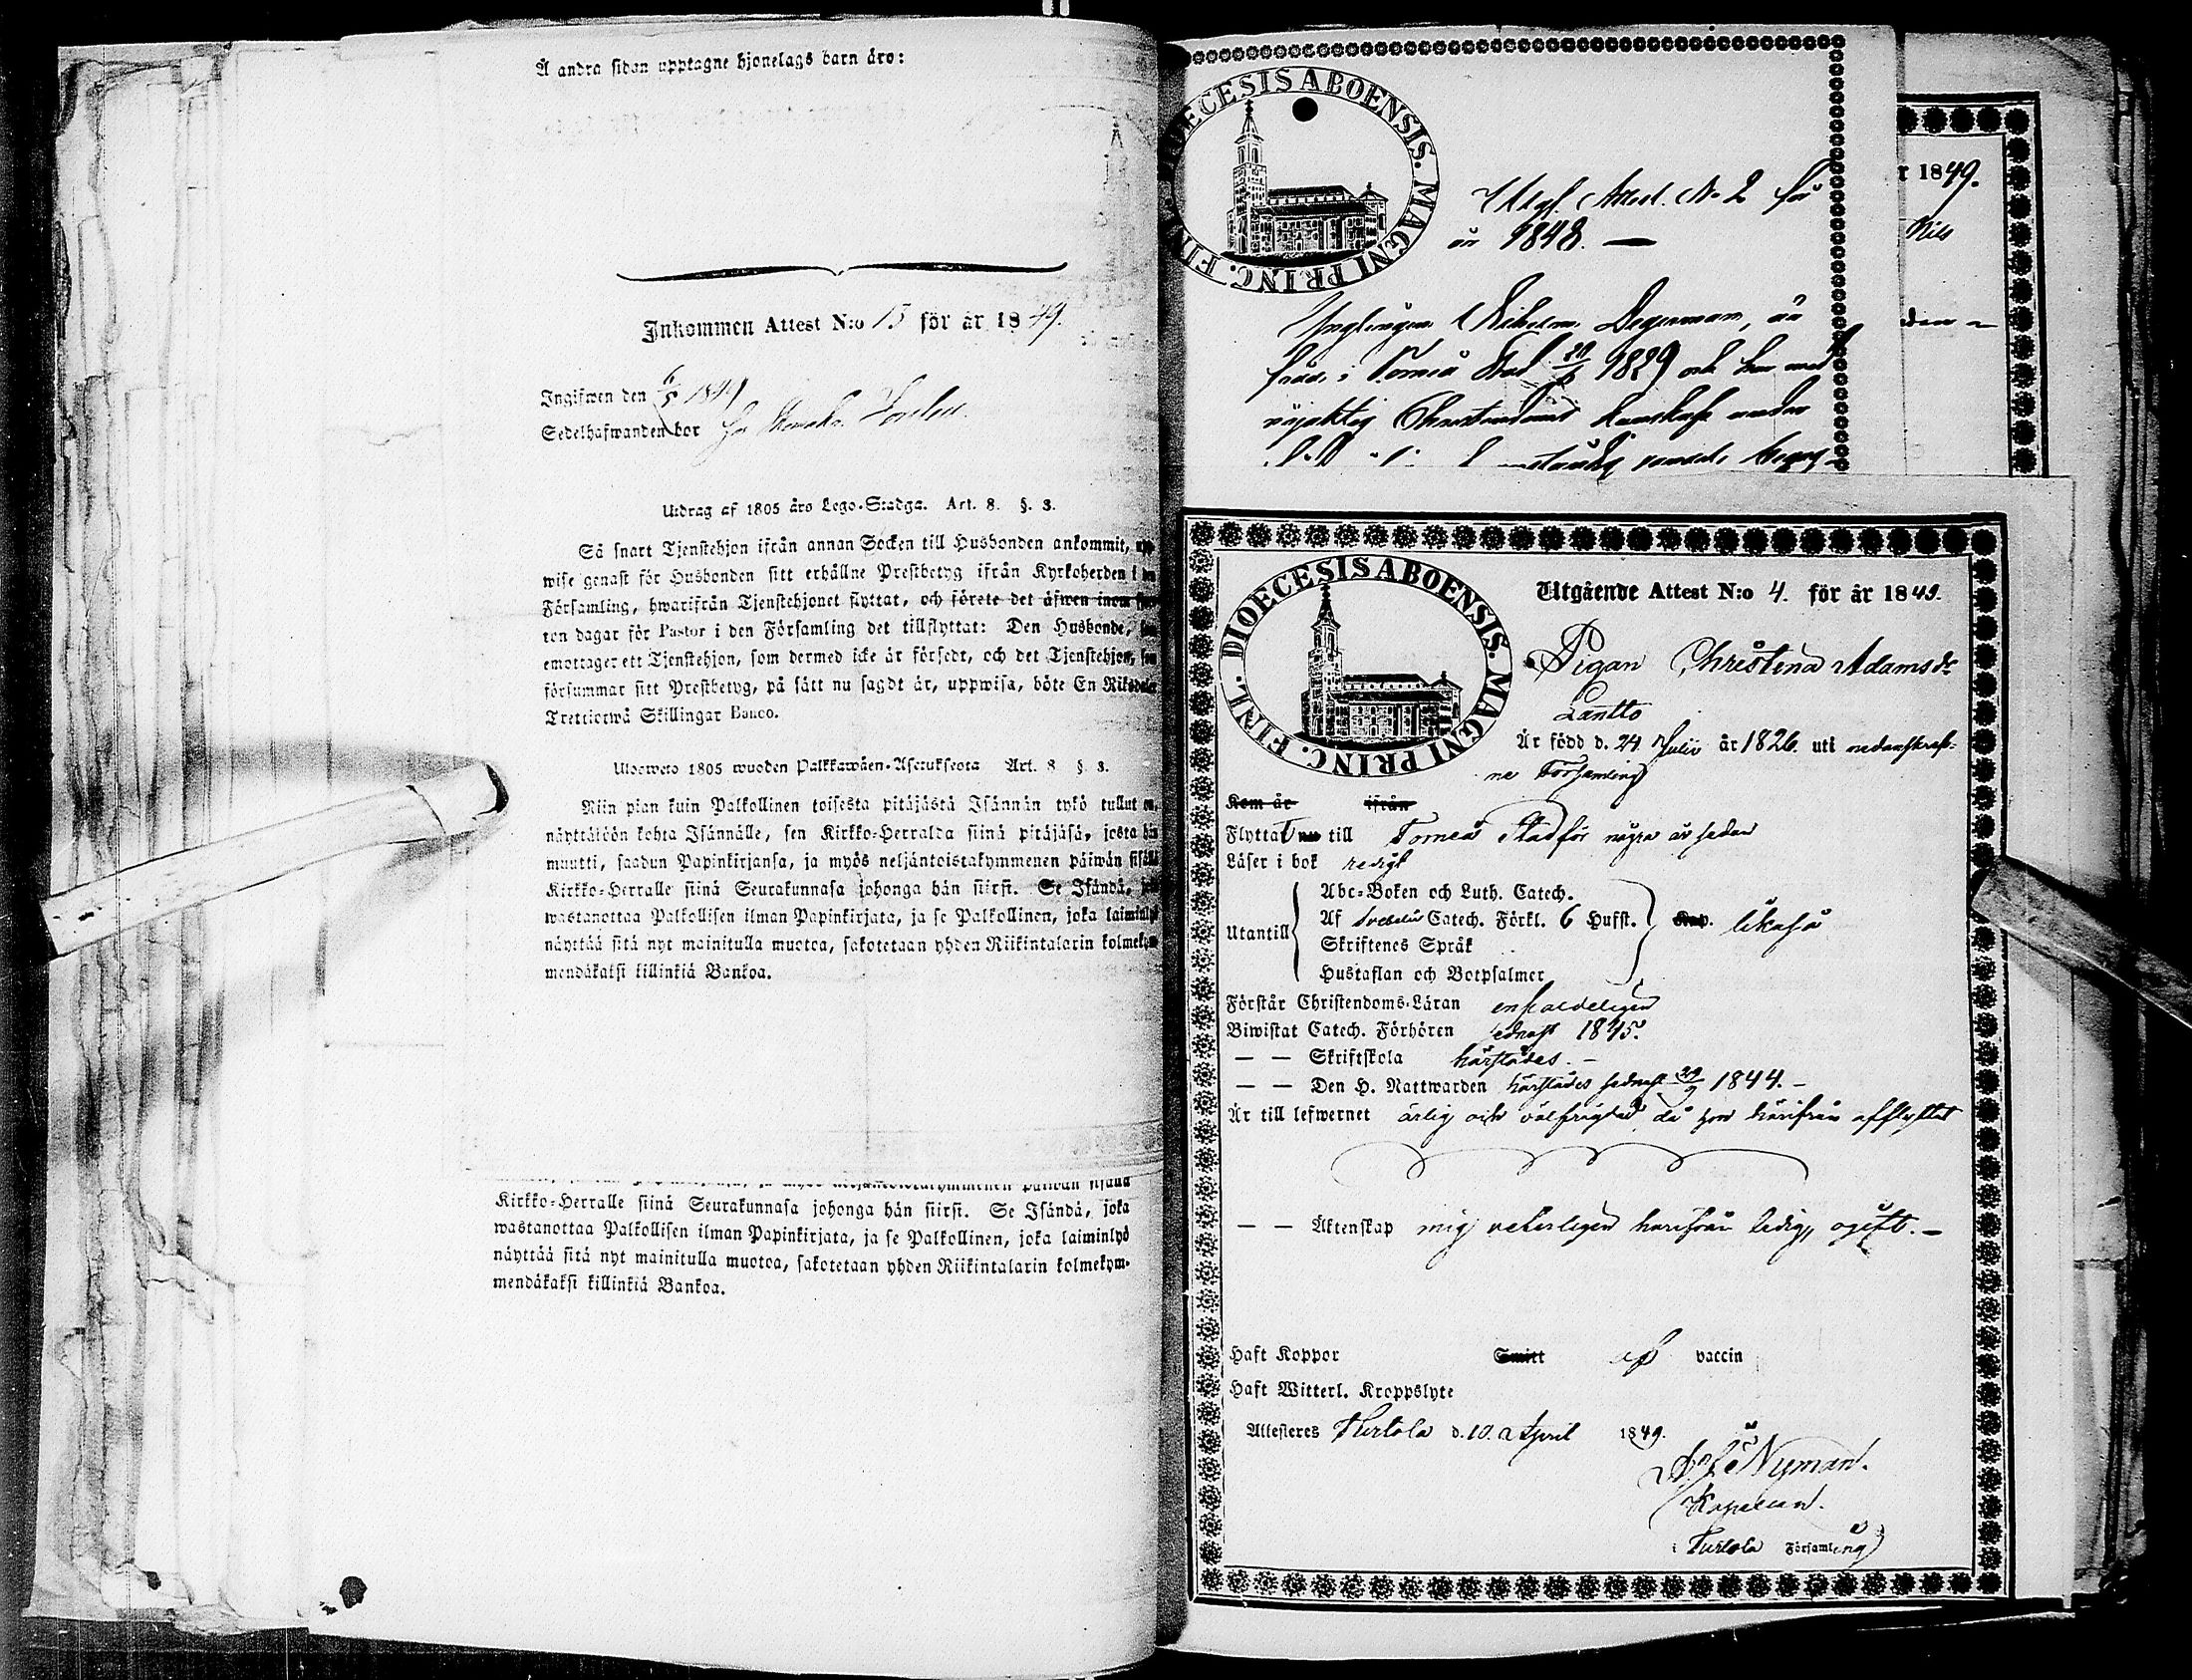 Å andra sidan upptagne hjonelags barn äro:
Inkommen Attest N:o 15 för år 1849.
Ingifwen den 6/5 1849
Sedelhafwanden bor hos
Utdrag af 1805 års Lego-Stadga. Art. 8. §. 3.
Så snart Tjenstehjon ifrån annan Socken till Husbonden ankommit, upp-
wise genast för Husbonden sitt erhållne Prestbetyg ifrån Kyrkoherden i den
Församling, hwarifrån Tjenstehjonet flyttat, och förete det äfwen inom
ton dagar för Pastor i den Församling det tillflyttat: Den Husbonde,
emottager ett Tjenstehjon, som dermed icke är försedt, och det Tjenstehjon, som
försummar sitt Prestbetyg, på sätt nu sagdt är, uppwisa, böte En Riksdaler
Trettiotwå Skillingar Banco.
Ulosweto 1805 wuoden Palkkawäen-Asetuksesta Art. 8 §. 3.
Niin pian kuin Palkollinen toisesta pitäjästä Isännän tykö tullut on,
näyttäköön kohta Isännälle, sen Kirkko-Herralda siinä pitäjäsä, josta hän
muutti, saadun Papinkirjansa, ja myös neljäntoistakymmenen päiwän sisällä
Kirkko-Herralle siinä Seurakunnasa johonga hän siirsi. Se Isändä, joka
wastanottaa Palkollisen ilman Papinkirjata, ja se Palkollinen, joka laiminlyö
näyttää sitä nyt mainitulla muotoa, sakotetaan yhden Riikintalarin kolmekym-
mendäkaksi killinkiä Bankoa.
Kirkko-Herralle siinä Seurakunnasa johonga hän siirsi. Se Isändä, joka
wastanottaa Palkollisen ilman Papinkirjata, ja se Palkollinen, joka laiminlyö
näyttää sitä nyt mainitulla muotoa, sakotetaan yhden Riikintalarin kolmekym-
mendäkaksi killinkiä Bankoa.
DIOECESIS ABOENSIS. MAGNI PRINC. FINL.
Utgå. Attest. No 2 för
år 1848. —
Ynglingen Wilhelm Degerman, är
född i Torneå Stad 1829 och har med
nöjaktig Christendoms kunskap
r 1849.
Nils
den
DIOECESIS ABOENSIS. MAGNI PRINC. FINL.
Utgående Attest N:o 4. för år 1849.
Pigan Christina Adamsdr
Lantto
Är född d. 24 Julii år 1826. uti nedanskref-
ne Församling
Kom är ifrån
Flyttat nu till Torneå Stad för några år sedan
Läser i bok redigt
Utantill
Abc-Boken och Luth. Catech.
Af Svebelii Catech. Förkl. 6 Hufst.
Skriftenes Språk
Hustaflan och Botpsalmer
Kap. likaså
Förstår Christendoms-Läran enfaldeligen
Biwistat Catech. Förhören sednast 1845.
— — Skriftskola härstädes. —
— — Den H. Nattwarden härstädes sednast 29/9 1844. —
Är till lefwernet ärlig och välfrägdad, då hon härifrån afflyttat
— — Äktenskap mig veterligen härifrån ledig, ogift. —
Haft Koppor Smitt af vaccin
Haft Witterl. Kroppslyte
Attesteres Turtola d. 10. April 1849.
Nyman.
Kapellan.
i Turtola Församling